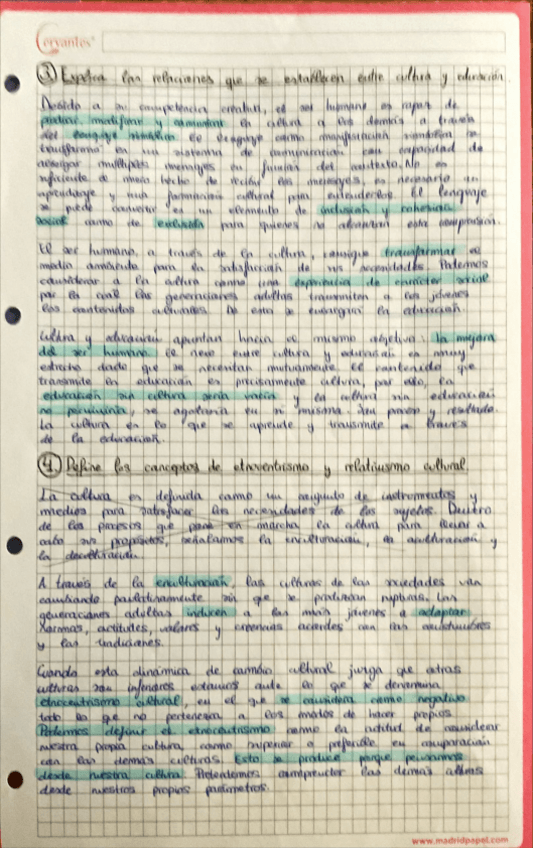 Cervantes
③ Explica las relaciones que se establecen entre cultura y educación.
Debido a su competencia creativa, el ser humano es capaz de
producir, modificar y comunicar la cultura a los demás a través
del lenguaje simbólico. El lenguaje como manifestación simbólica se
transforma en un sistema de comunicación con capacidad de
múltiples mensajes en función del contexto. No es
suficiente el mero hecho de recibir los mensajes, es necesario un
aprendizaje y una formación cultural para entenderlos. El lenguaje
se puede convertir en un elemento de inclusión y cohesión
social como de exclusión para quienes no alcanzan esta comprensión.
El ser humano, a través de la cultura, consigue transformar el
medio ambiente para la satisfacción de sus necesidades. Podemos
considerar a la cultura como una experiencia de carácter social
por la cual las generaciones adultas transmiten a los jóvenes
los contenidos culturales. De esto se encargan la educación.
Cultura y educación apuntan hacia el mismo objetivo: la mejora
del ser humano. El nexo entre cultura y educación es muy
estrecho dado que se necesitan mutuamente. El contenido que
transmite la educación es precisamente cultura, por ello, la
educación sin cultura sería vacía y la cultura sin educación
no perviviría, se agotaría en sí misma. Son proceso y resultado.
La cultura es lo que se aprende y transmite a través
de la educación.
④ Define los conceptos de etnocentrismo y relativismo cultural.
La cultura es definida como un conjunto de instrumentos y
medios para satisfacer las necesidades de los sujetos. Dentro
de los procesos que pone en marcha la cultura para llevar a
cabo sus propósitos, señalamos la enculturación, la aculturación y
la deculturación.
A través de la enculturación, las culturas de las sociedades van
cambiando paulatinamente sin que se produzcan rupturas. Las
generaciones adultas inducen a las más jóvenes a adoptar
normas, actitudes, valores y creencias acordes con las costumbres
y las tradiciones.
Cuando esta dinámica de cambio cultural juzga que otras
culturas son inferiores estamos ante lo que se denomina
etnocentrismo cultural, en el que se considera como negativo
todo lo que no pertenezca a los modos de hacer propios.
Podemos definir el etnocentrismo como la actitud de considerar
nuestra propia cultura, como superior o preferible en comparación
con las demás culturas. Esto se produce porque pensamos
desde nuestra cultura. Pretendemos comprender las demás culturas
desde nuestros propios parámetros.
www.madridpapel.com